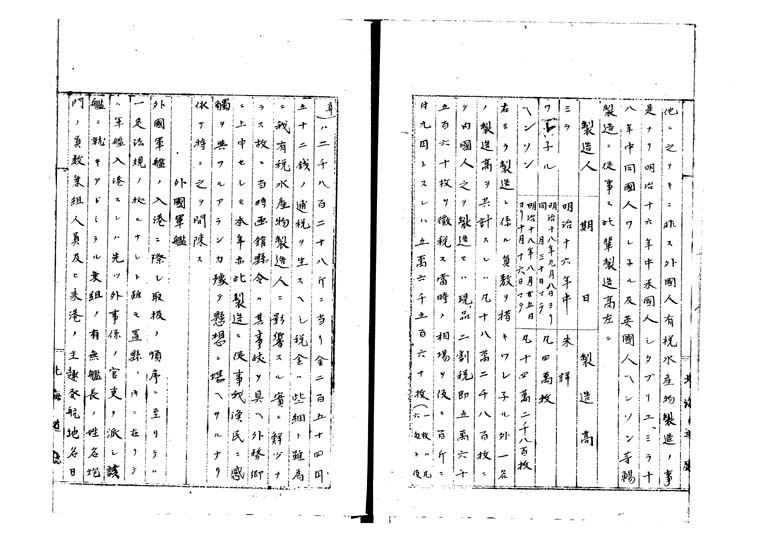 他ニ之ナキニ非ス外國人有税水産物製造ノ事
是ナリ明治十六年中米國人シタブリユ、ミラ十
八年中同國人ワレチル及英國人ヘンソン等輸
製造ニ從事ス此輩製造高左ニ
製造人 期日 製造高
ミラ 明治十六年中 未詳
ワレチル 明治十八年九月八日ヨリ同月三十日マテ 凡四萬枚
ヘンソン 明治十八年八月廿五日ヨリ十月十六日マテ 凡十四萬二千八百枚
右ミラ製造ニ係ル員數ヲ措キワレチル外一名
ノ製造高ヲ共計スレハ凡十八萬二千八百枚ニ
シテ內國人之ヲ製造セハ現品二割税即五萬六千
五百六十枚ヲ徵税ス當時ノ相場ヲ以テ百斤ニ
付九円トスレハ五萬六千五百六十枚
ハ二千八百二十八斤ニ当リ金二百五十四円
五十二錢ノ逋税ヲ生スヘシ税金ハ些細ト雖為
ニ我有税水産物製造人ニ影響スル實ニ鮮少ナ
ラス故ニ当時函館縣令ハ其事狀ヲ具ヘ外務卿
ニ上申セシモ本年亦此製造ニ從事シ漁民ニ感
觸ヲ與フルアランカ掾ヲ懸想ニ堪ヘサルナリ
依テ特ニ之ヲ開陳ス
外國軍艦
外國軍艦ノ入港ニ際シ取扱ノ順序ニ至リテハ
一定法規ノ杖ルナシト雖モ置縣ノ中ニ在リテ
ハ軍艦入港スレハ先ツ外事係ノ官吏ヲ派シ該
艦ニ就キアドミラル乗組ノ有無艦長ノ姓名炮
門ノ員數乗組人員及ヒ来港ノ主趣發航地名日
北海道廳